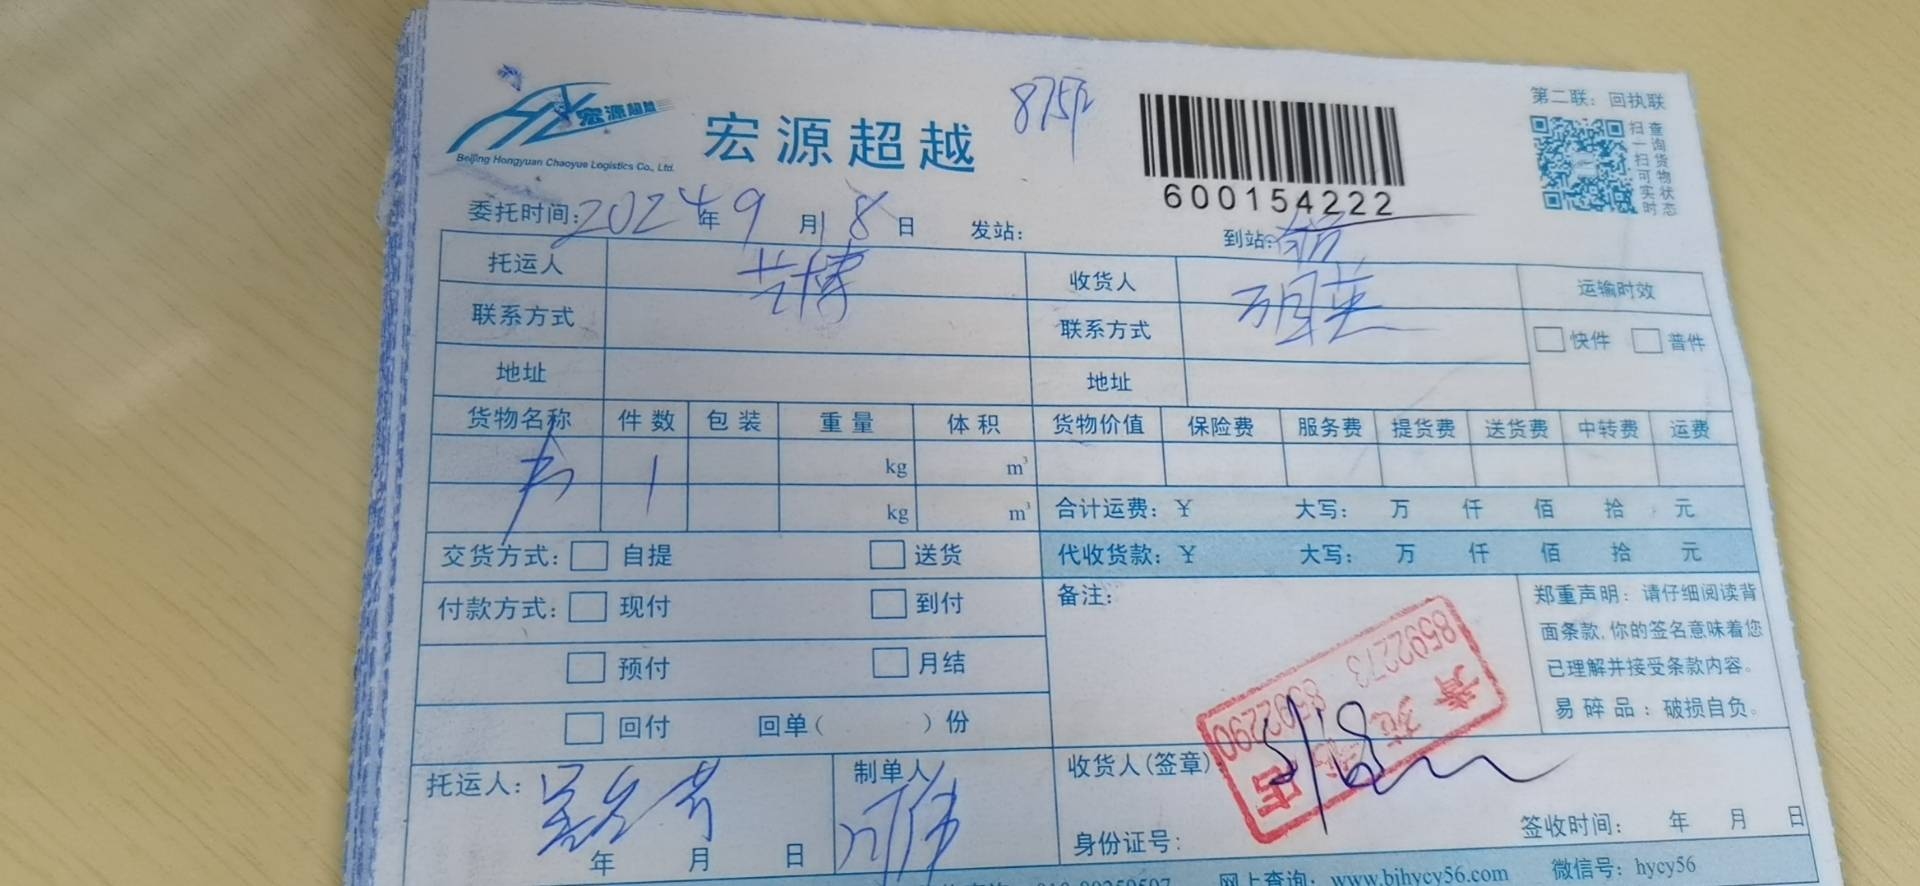 宏源超越
Beijing Hongyuan Chaoyue Logistics Co., Ltd.
宏源超越
600154222
第二联：回执联
扫一扫可实时
查询货物状态
委托时间：2024年9月18日 发站： 到站：
托运人 艺博 收货人 运输时效
联系方式 联系方式 快件 普件
地址 地址
货物名称 件数 包装 重量 体积 货物价值 保险费 服务费 提货费 送货费 中转费 运费
书 1 kg m³
kg m³ 合计运费：￥ 大写： 万 仟 佰 拾 元
交货方式： 自提 送货 代收货款：￥ 大写： 万 仟 佰 拾 元
付款方式： 现付 到付 备注：
预付 月结
回付 回单（ ）份
郑重声明：请仔细阅读背
面条款,你的签名意味着您
已理解并接受条款内容。
易碎品：破损自负。
8592273
8592290
托运人： 制单人 收货人(签章)
年 月 日 身份证号： 签收时间： 年 月 日
网上查询：www.bjhycy56.com 微信号：hycy56